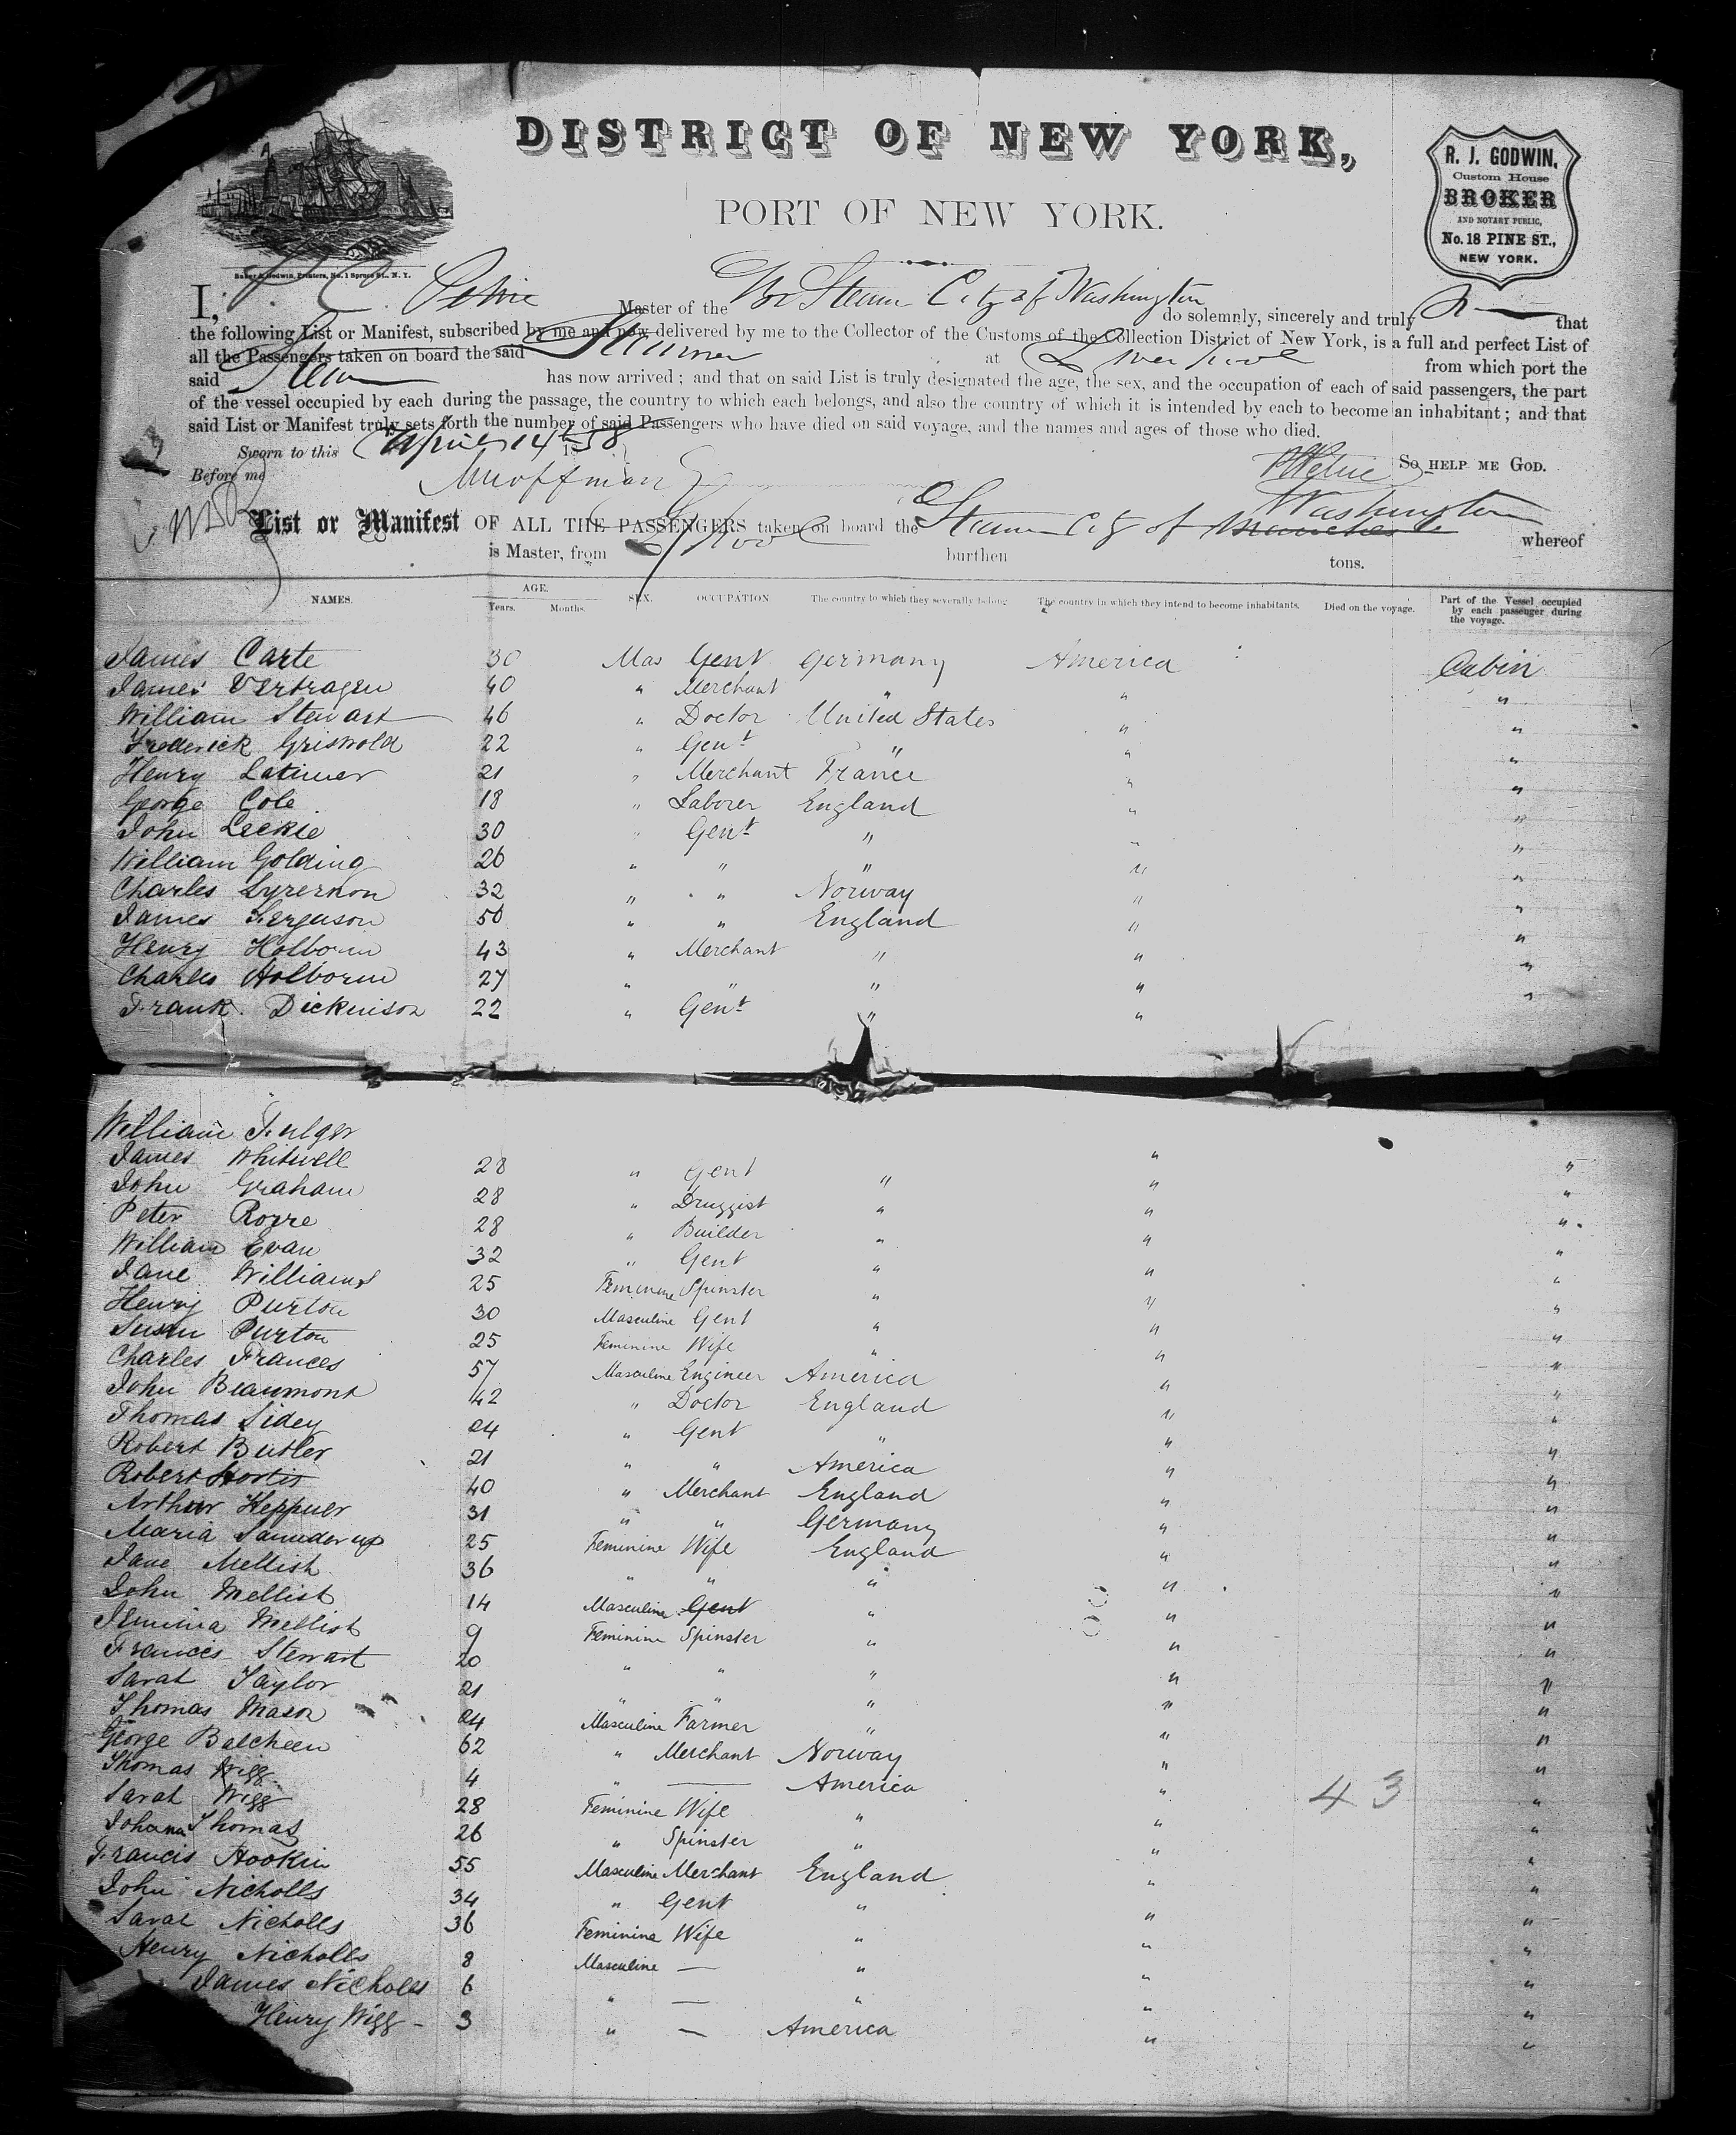 DISTRICT OF NEW YORK,
PORT OF NEW YORK.
R. J. GODWIN,
Custom House
BROKER
AND NOTARY PUBLIC,
No. 18 PINE ST.,
NEW YORK.
Baker & Godwin, Printers, No. 1 Spruce St., N. Y.
I, Petrie Master of the Br Steam City of Washington do solemnly, sincerely and truly that
the following List or Manifest, subscribed by me and now delivered by me to the Collector of the Customs of the Collection District of New York, is a full and perfect List of
all the Passengers taken on board the said Steamer at Liverpool from which port the
said Steamer has now arrived; and that on said List is truly designated the age, the sex, and the occupation of each of said passengers, the part
of the vessel occupied by each during the passage, the country to which each belongs, and also the country of which it is intended by each to become an inhabitant; and that
said List or Manifest truly sets forth the number of said Passengers who have died on said voyage, and the names and ages of those who died.
Sworn to this April 14th 1858
Petrie So HELP ME GOD.
Before me
Washington
List or Manifest OF ALL THE PASSENGERS taken on board the Steam City of Manchester whereof
is Master, from L'pool burthen tons.
NAMES. AGE. Years. Months. SEX. OCCUPATION The country to which they severally belong The country in which they intend to become inhabitants. Died on the voyage. Part of the Vessel occupied by each passenger during the voyage.
James Carte 30 Mas Gent Germany America Cabin
James Vertragen 40 " Merchant " " "
William Stewart 46 " Doctor United States " "
Frederick Griswold 22 " Gent " " "
Henry Latimer 21 " Merchant France " "
George Cole 18 " Laborer England " "
John Leckie 30 " Gent " " "
William Golding 26 " " " " "
Charles 32 " " Norway " "
James Ferguson 50 " " England " "
Henry Holborn 43 " Merchant " " "
Charles Holborn 27 " " " " "
Frank Dickinson 22 " Gent " " "
William Fulger
James Whitwell 28 " Gent " " "
John Graham 28 " Druggist " " "
Peter 28 " Builder " " "
William Evan 32 " Gent " " "
Jane Williams 25 Feminine Spinster " " "
Henry Purton 30 Masculine Gent " " "
Susan Purton 25 Feminine Wife " " "
Charles Frances 57 Masculine Engineer America " "
John Beaumont 42 " Doctor England " "
Thomas Sidey 24 " Gent " " "
Robert Butler 21 " " America " "
Robert 40 " Merchant England " "
Arthur Heppner 31 " " Germany " "
Maria 25 Feminine Wife England " "
Jane Mellish 36 " " " " "
John Mellish 14 Masculine Gent " " "
Jemima Mellish 9 Feminine Spinster " " "
Frances Stewart 20 " " " " "
Sarah Taylor 21 " " " " "
Thomas Mason 24 Masculine Farmer " " "
George Balcheen 62 " Merchant Norway " "
Thomas Wigg 4 " — America " "
43
Sarah Wigg 28 Feminine Wife " " "
Johana Thomas 26 " Spinster " " "
Francis Hookin 55 Masculine Merchant England " "
John Nicholls 34 " Gent " " "
Sarah Nicholls 36 Feminine Wife " " "
Henry Nicholls 8 Masculine — " " "
James Nicholls 6 " — " " "
Henry Wigg - 3 " — America " "